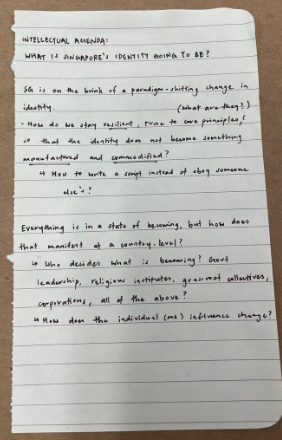 INTELLECTUAL AGENDA:
WHAT IS SINGAPORE'S IDENTITY GOING TO BE?
SG is on the brink of a paradigm-shifting change in
identity. (What are they?)
- How do we stay resilient, true to core principles,
so that the identity does not become something
manufactured and commodified?
↳ How to write a script instead of obey someone
else's?
Everything is in a state of becoming, but how does
that manifest at a country-level?
↳ Who decides what is becoming? Govt
leadership, religious institutes, grassroot collectives,
corporations, all of the above?
↳ How does the individual (me) influence change?